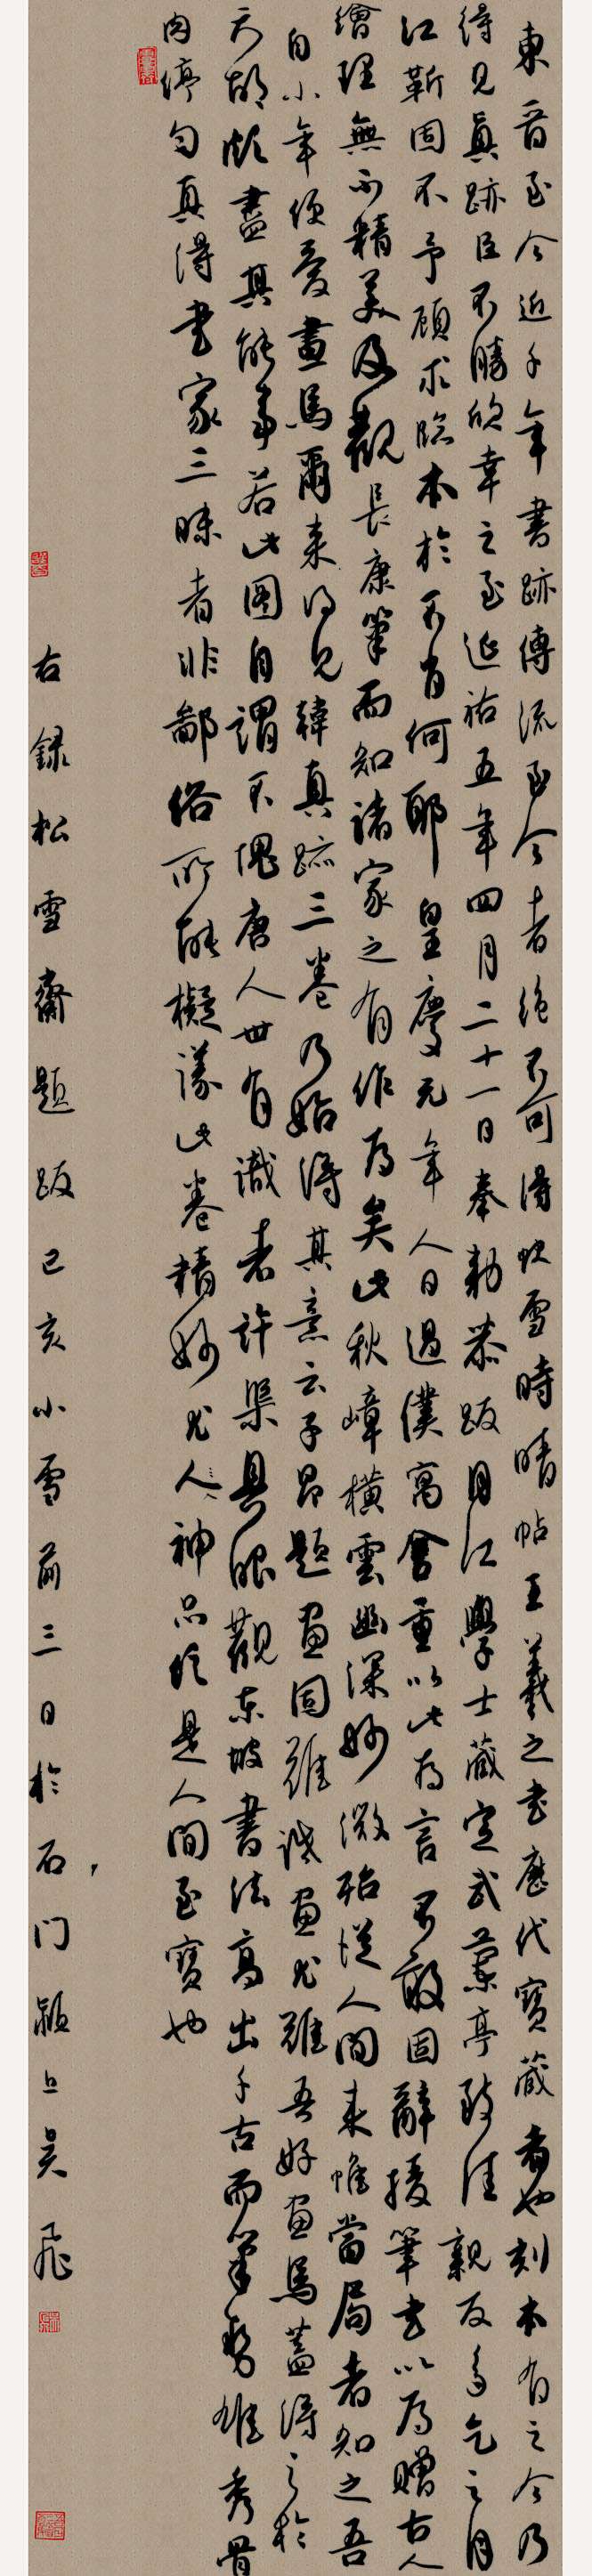 東晉至今近千年書跡傳流至今者絶不可得快雪時晴帖王羲之書歷代寶藏者也刻本有之今乃
得見真跡臣不勝欣幸之至延祐五年四月二十一日奉勅恭跋月江學士藏定武蘭亭致佳親友多乞之月
江靳固不予顧求臨本於不肖何耶皇慶元年人日過僕寓舍重以此為言不敢固辭援筆書以為贈古人
繪理無不精美及觀長康筆而知諸家之有作為矣此秋嶂橫雲幽深妙微殆從人間來惟當局者知之吾
自小年便愛畫馬爾來得見韓真跡三卷乃始得其意云子昂題畫固難誠畫尤難吾好畫馬蓋得之於
天故頗盡其能事若此圖自謂不愧唐人世有識者許渠具眼觀東坡書法高出千古而筆勢雄秀骨
肉停勻真得書家三昧者非鄙俗所能擬議此卷精妙尤人神品信是人間至寶也
右録松雪齋題跋己亥小雪前三日於石门潁上吴飛